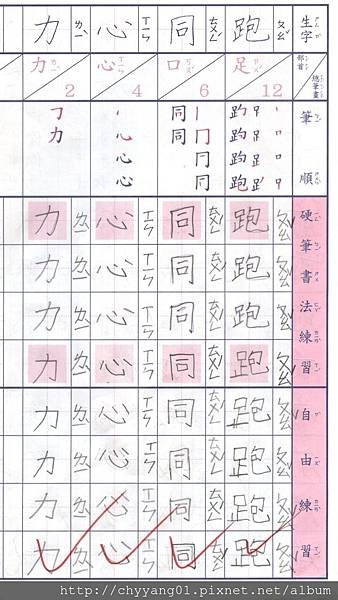 生字 部首 總筆畫 筆順 硬筆書法練習 自由練習
跑 ㄆㄠˇ
足 12
跑 ㄆㄠˇ
跑 ㄆㄠˇ
跑 ㄆㄠˇ
跑 ㄆㄠˇ
跑 ㄆㄠˇ
跑 ㄆㄠˇ
跑 ㄆㄠˇ
跑 ㄆㄠˇ
同 ㄊㄨㄥˊ
口 6
同 ㄊㄨㄥˊ
同 ㄊㄨㄥˊ
同 ㄊㄨㄥˊ
同 ㄊㄨㄥˊ
同 ㄊㄨㄥˊ
同 ㄊㄨㄥˊ
同 ㄊㄨㄥˊ
同 ㄊㄨㄥˊ
心 ㄒㄧㄣ
心 4
心 ㄒㄧㄣ
心 ㄒㄧㄣ
心 ㄒㄧㄣ
心 ㄒㄧㄣ
心 ㄒㄧㄣ
心 ㄒㄧㄣ
心 ㄒㄧㄣ
心 ㄒㄧㄣ
力 ㄌㄧˋ
力 2
力 ㄌㄧˋ
力 ㄌㄧˋ
力 ㄌㄧˋ
力 ㄌㄧˋ
力 ㄌㄧˋ
力 ㄌㄧˋ
力 ㄌㄧˋ
力 ㄌㄧˋ
http://chyyang01.pixnet.net/album